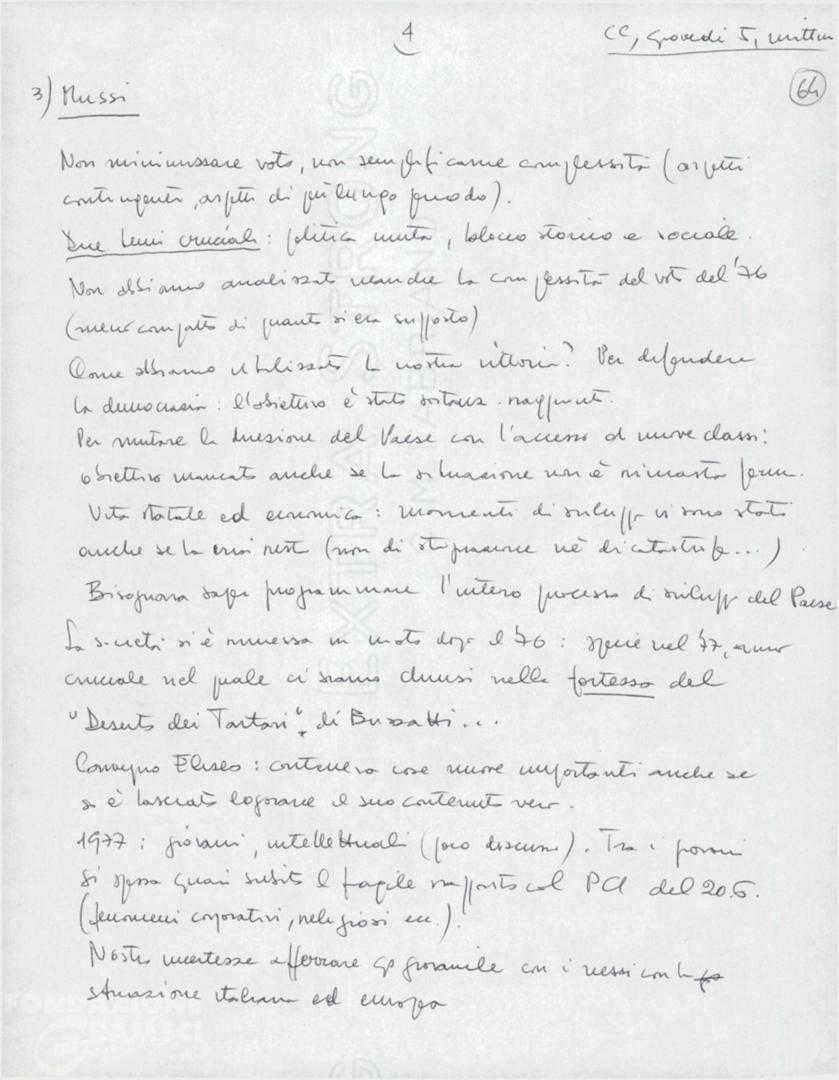 4
CC, giovedì 5, mattina
64
3) Mussi
Non minimizzare voto, non semplificarne complessità (aspetti
contingenti, aspetti di più lungo periodo).
Due temi cruciali: politica unità, blocco storico e sociale.
Non abbiamo analizzato neanche la complessità del voto del '76
(meno compatto di quanto si era supposto)
Come abbiamo utilizzato la nostra vittoria? Per difendere
la democrazia: l'obiettivo è stato sostanz. raggiunto.
Per mutare la direzione del Paese con l'accesso di nuove classi:
obiettivo mancato anche se la situazione non è rimasta ferma.
Vita statale ed economica: momenti di sviluppo vi sono stati
anche se la crisi resta (non di stagnazione nè di catastrofe...)
Bisognava saper programmare l'intero processo di sviluppo del Paese
La società si è rimessa in moto dopo il '76: specie nel '77, anno
cruciale nel quale ci siamo chiusi nella fortezza del
"Deserto dei Tartari" di Buzzatti...
Convegno Eliseo: conteneva cose nuove importanti anche se
si è lasciato logorare il suo contenuto vero.
1977: giovani, intellettuali (poco discusso). Tra i giovani
si spezza quasi subito il fragile rapporto col PCI del 20.6.
(fenomeni corporativi, religiosi ecc.).
Nostre incertezze afferrare qs giovanile con i nessi con la
situazione italiana ed europea
EXTRA STRONG
FONDAZIONE
GRAMSCI